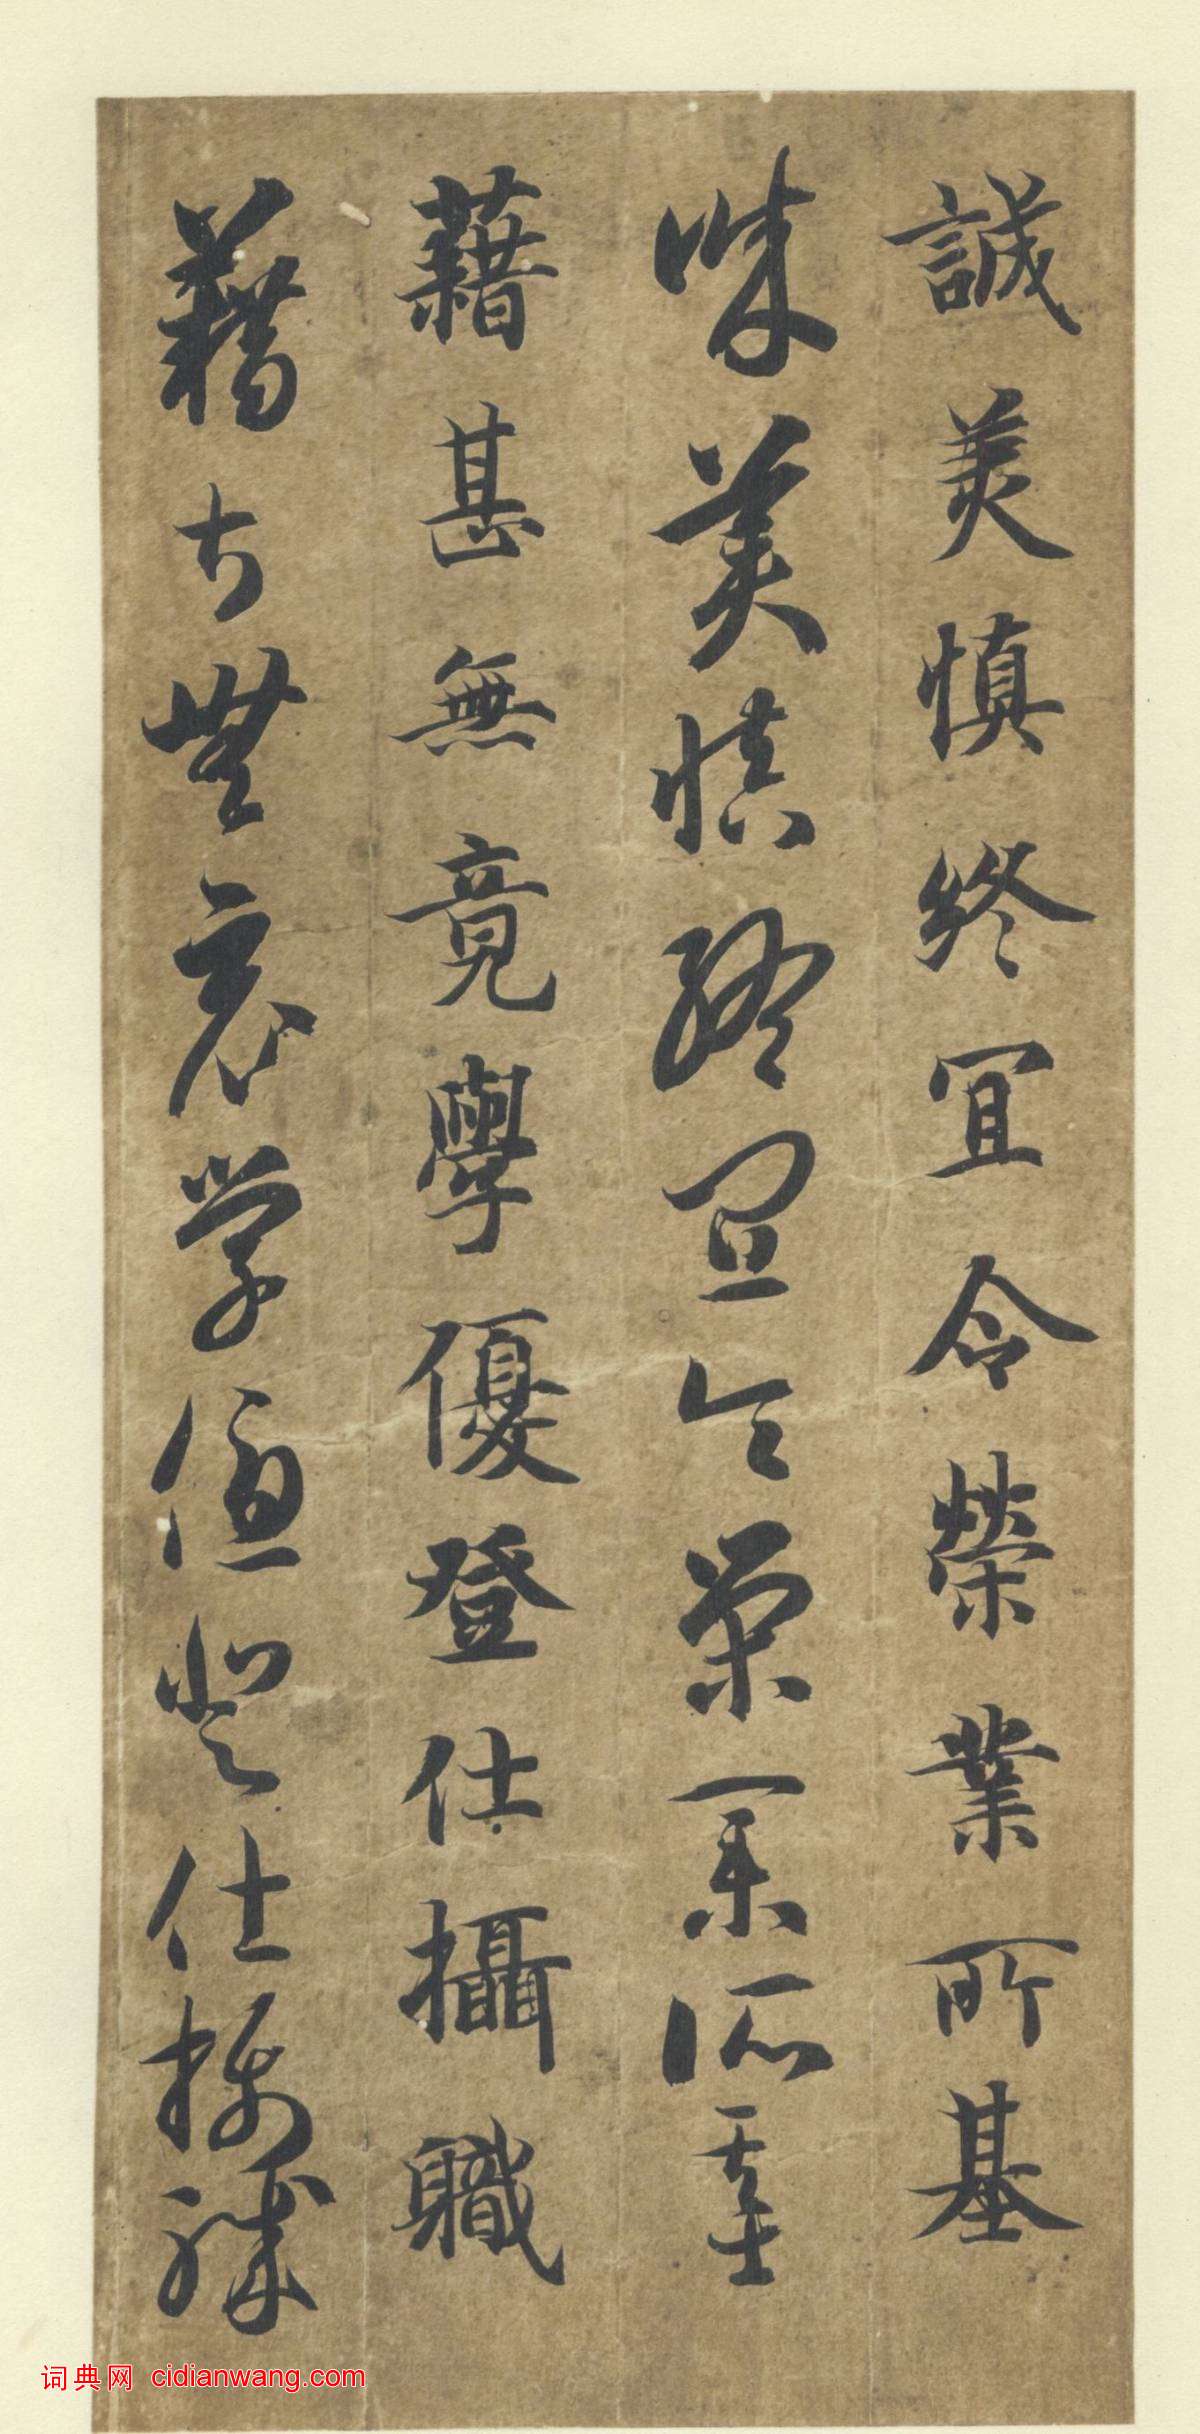 誠美慎終宜令榮業所基
誠美慎終宜令榮業所基
藉甚無竟學優登仕攝職
藉甚無竟學優登仕攝職
词典网 cidianwang.com